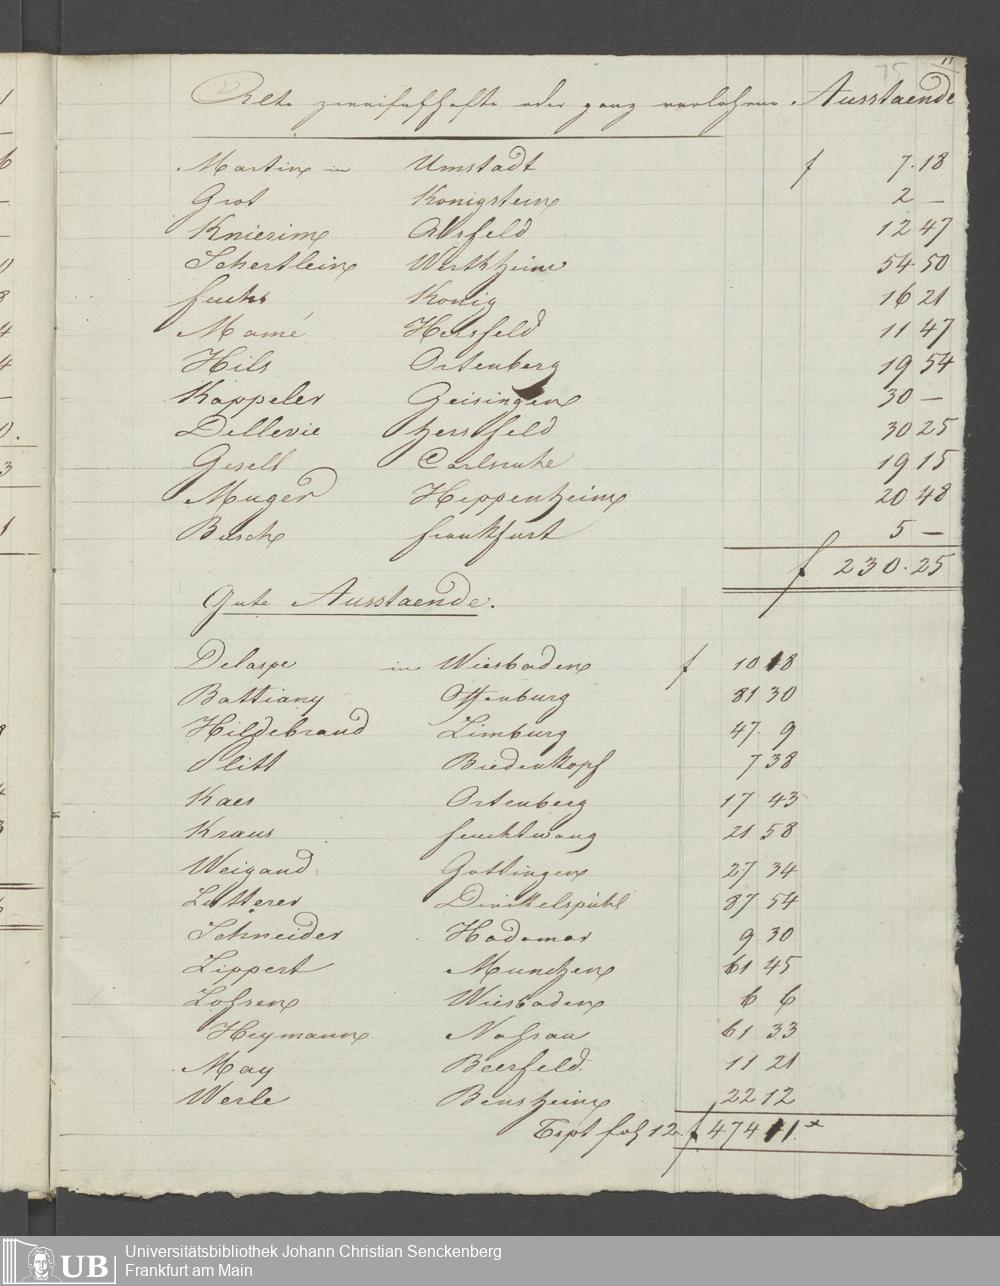 75 11
Alte zweifelhafte oder ganz verlohrne Ausstaende
Martin in Umstadt f 7.18
Grot Konigstein 2 —
Knierim Alsfeld 12 47
Schertlein Werthheim 54.50
fuchs Konig 16 21
Mamé Hersfeld 11 47
Hils Ortenberg 19 54
Kappeler Geisingen 30 —
Dellevie hersfeld 30 25
Gesell Carlsruhe 19 15
Muger Heppenheim 20 48
Busch frankfurt 5 —
f 230.25
Gute Ausstaende.
Delaspe in Wiesbaden f 10 18
Battiany Offenburg 81 30
Hildebrand Limburg 47. 9
Plitt Biedenkopf 7 38
Kaes Ortenberg 17 43
Kraus feuchtwang 21 58
Weigand Gottingen 27 34
Lotterer Dinkelspühl 87 54
Schneider Hadamar 9 30
Lippert Munchen 61 45
Lossen Wiesbaden 6 6
Heymann Nassau 61 33
May Beerfeld 11 21
Werle Bensheim 22 12
Trspt fol 12. f 474 11 x
Universitätsbibliothek Johann Christian Senckenberg
Frankfurt am Main
UB